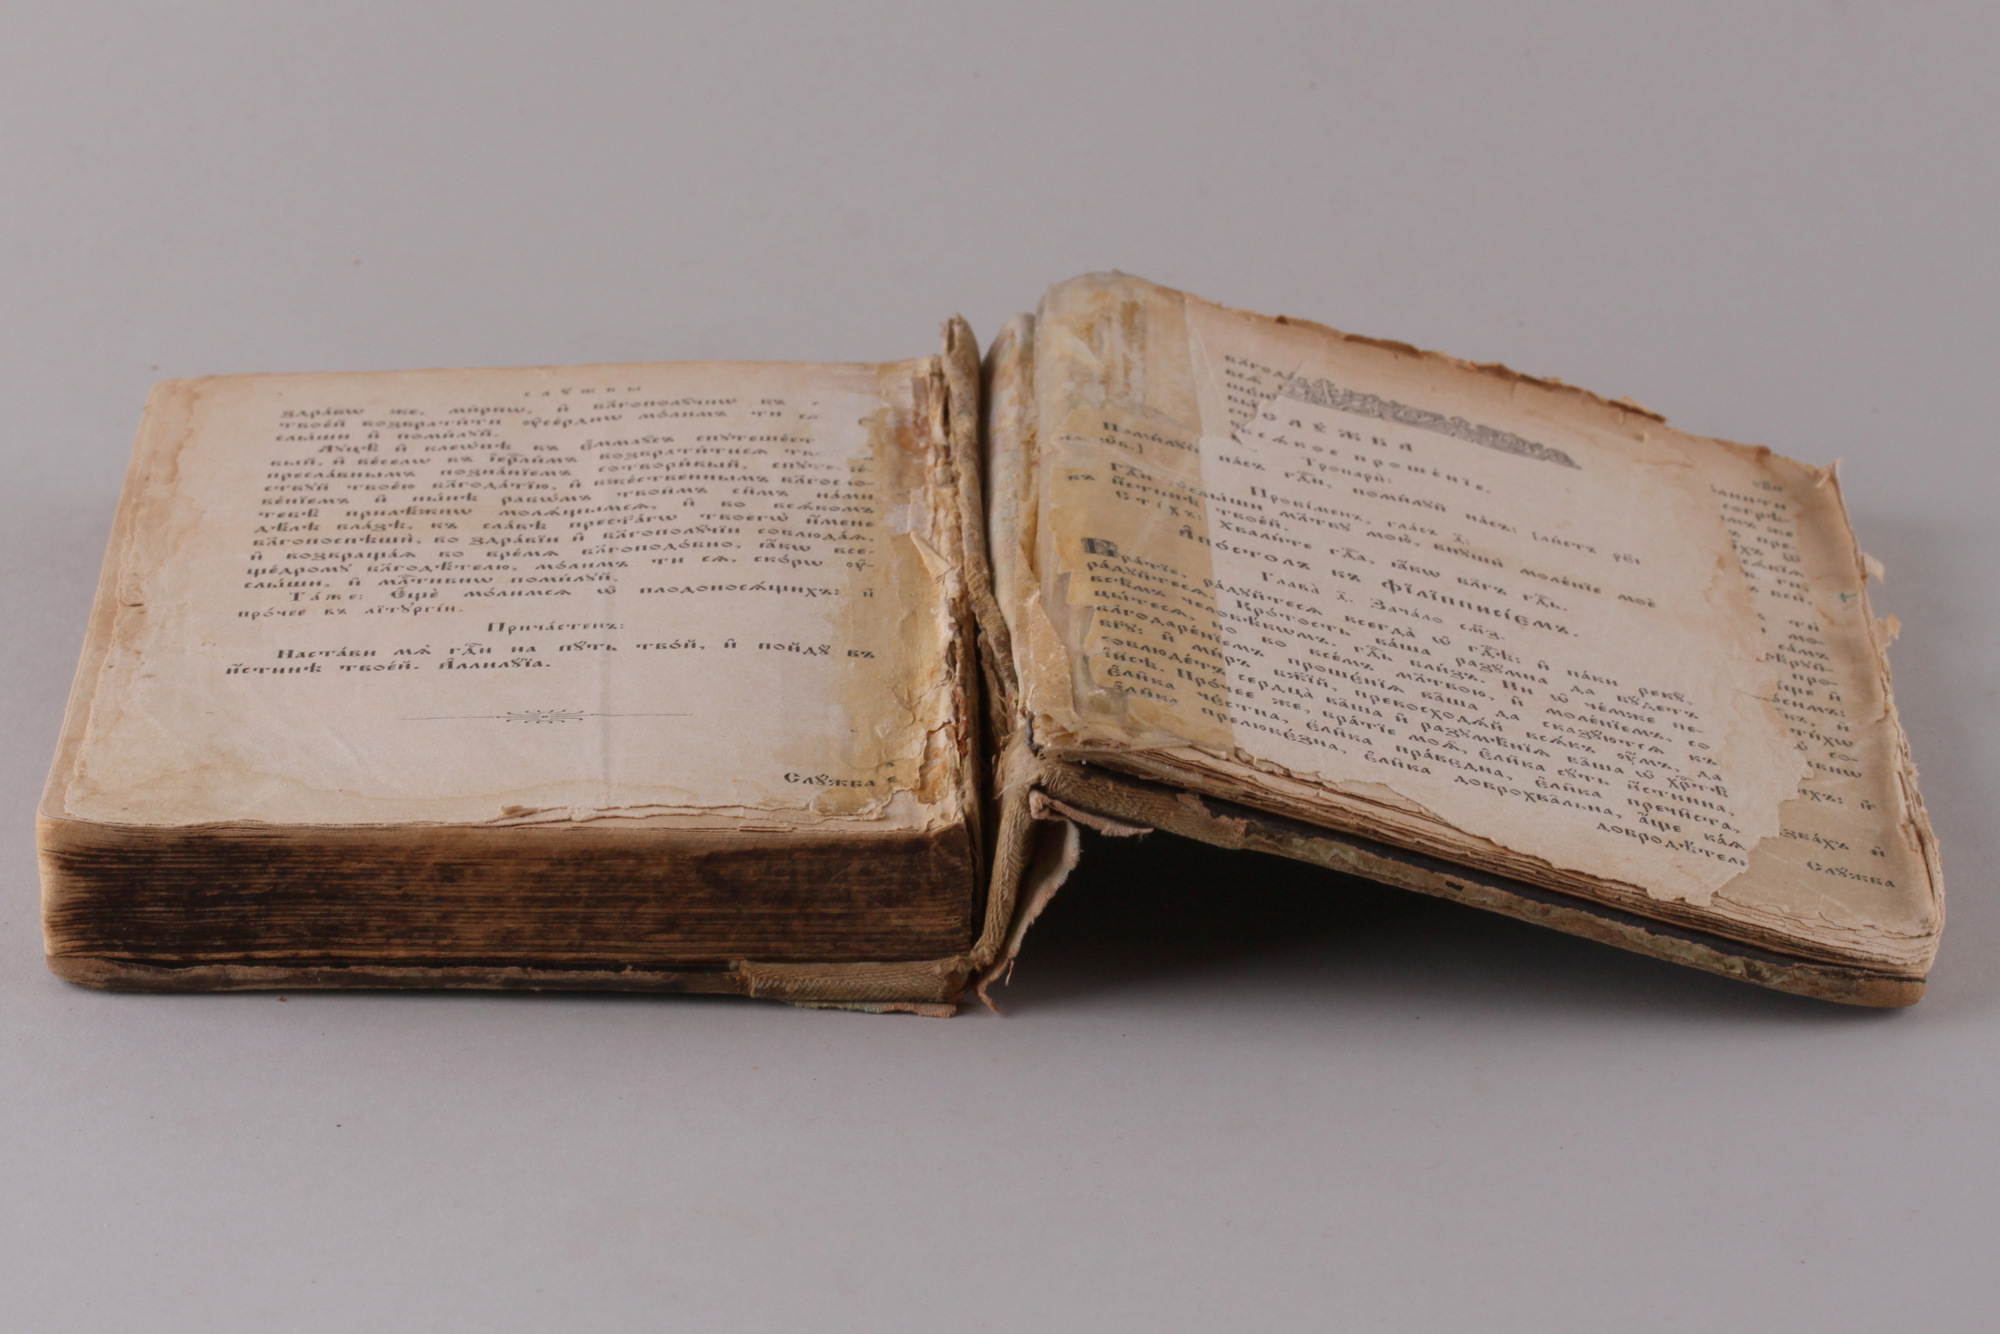 слꙋжбы
здра́вѡ же, ми́рнѡ, и҆ бл҃гополꙋ́чнѡ въ
твоѐй возврати́ти ᲂу҆се́рднѡ мо́лимъ ти
слы́ши и҆ поми́лꙋй.
Лꙋцѣ̀ и҆ клео́пѣ въ є҆ммаꙋ́съ спꙋтеше́ст
вый, и҆ ве́селѡ въ і҆ерⷭ҇ли́мъ возврати́тисѧ
пресла́внымъ позна́нїемъ сотвори́вый, спꙋтеше́-
ствꙋй твое́ю бл҃года́тїю, и҆ бж҃е́ственнымъ бл҃госло-
ве́нїемъ и҆ ны́нѣ рабѡ́мъ твои̑мъ си̑мъ на́ми
тебѣ̀ прилѣ́жнѡ молѧ́щымсѧ, и҆ во всѧ́комъ
дѣ́лѣ бла́зѣ, къ сла́вѣ прест҃а́гѡ твоегѡ̀ и҆́мене
бл҃госпѣшѝ, во здра́вїи и҆ бл҃гополꙋ́чїи соблюда́ѧ,
и҆ возвраща́ѧ во вре́мѧ бл҃гоподо́бно, ꙗ҆́кѡ все-
ще́дромꙋ бл҃годѣ́телю, мо́лимъ ти сѧ, ско́рѡ ᲂу҆-
слы́ши, и҆ млⷭ҇тивнѡ поми́лꙋй.
Та́же: Є҆щѐ мо́лимсѧ ѡ҆ плодоносѧ́щихъ: и҆
про́чее въ лїтꙋргі́и.
Прича́стенъ:
Наста́ви мѧ̀ гдⷭ҇и на пꙋ́ть тво́й, и҆ пойдꙋ̀ въ
и҆́стинѣ твое́й. А҆ллилꙋ́їа.
Слꙋ́жба
СЛꙊ́ЖБА
всѧ́кое проше́нїе.
Тропари̑:
Поми́лꙋй на́съ гдⷭ҇и, поми́лꙋй на́съ: [ли́стъ
Прокі́менъ, гла́съ д҃:
Гдⷭ҇и ᲂу҆слы́ши мл҃твꙋ мою̀, внꙋшѝ моле́нїе моѐ
въ и҆́стинѣ твое́й.
Сті́хъ: Хвали́те гдⷭ҇а, ꙗ҆́кѡ бл҃гъ гдⷭ҇ь.
А҆по́столъ къ фїлїпписі́ємъ.
Глава̀ д҃. Зача́ло см҃з.
Бра́тїе, ра́дꙋйтесѧ всегда̀ ѡ҆ гдⷭ҇ѣ: и҆ па́ки рекꙋ̀,
ра́дꙋйтесѧ. Кро́тость ва́ша разꙋ́мна да бꙋ́детъ
всѣ̑мъ человѣ́кѡмъ. Гдⷭ҇ь бли́зъ. Ни ѡ҆ че́мже пе-
цы́тесѧ, но во все́мъ мл҃твою, и҆ моле́нїемъ, со
бл҃годаре́нїемъ прошє́нїѧ ва̑ша да сказꙋ́ютсѧ къ
бг҃ꙋ: и҆ ми́ръ бж҃їй, превосходѧ́й всѧ́къ ᲂу҆́мъ, да
соблюде́тъ сердца̀ ва̑ша и҆ разꙋмѣ̑нїѧ ва̑ша ѡ҆ хрⷭ҇тѣ̀
і҆и҃сѣ. Про́чее же, бра́тїе моѧ̑, є҆ли̑ка сꙋ́ть и҆́стинна,
є҆ли̑ка чє́стна, є҆ли̑ка пра́вєдна, є҆ли̑ка пречи̑ста,
є҆ли̑ка прелю́бєзна, є҆ли̑ка доброхва̑льна, а҆́ще ка́ѧ
добродѣ́тель
Слꙋ́жба